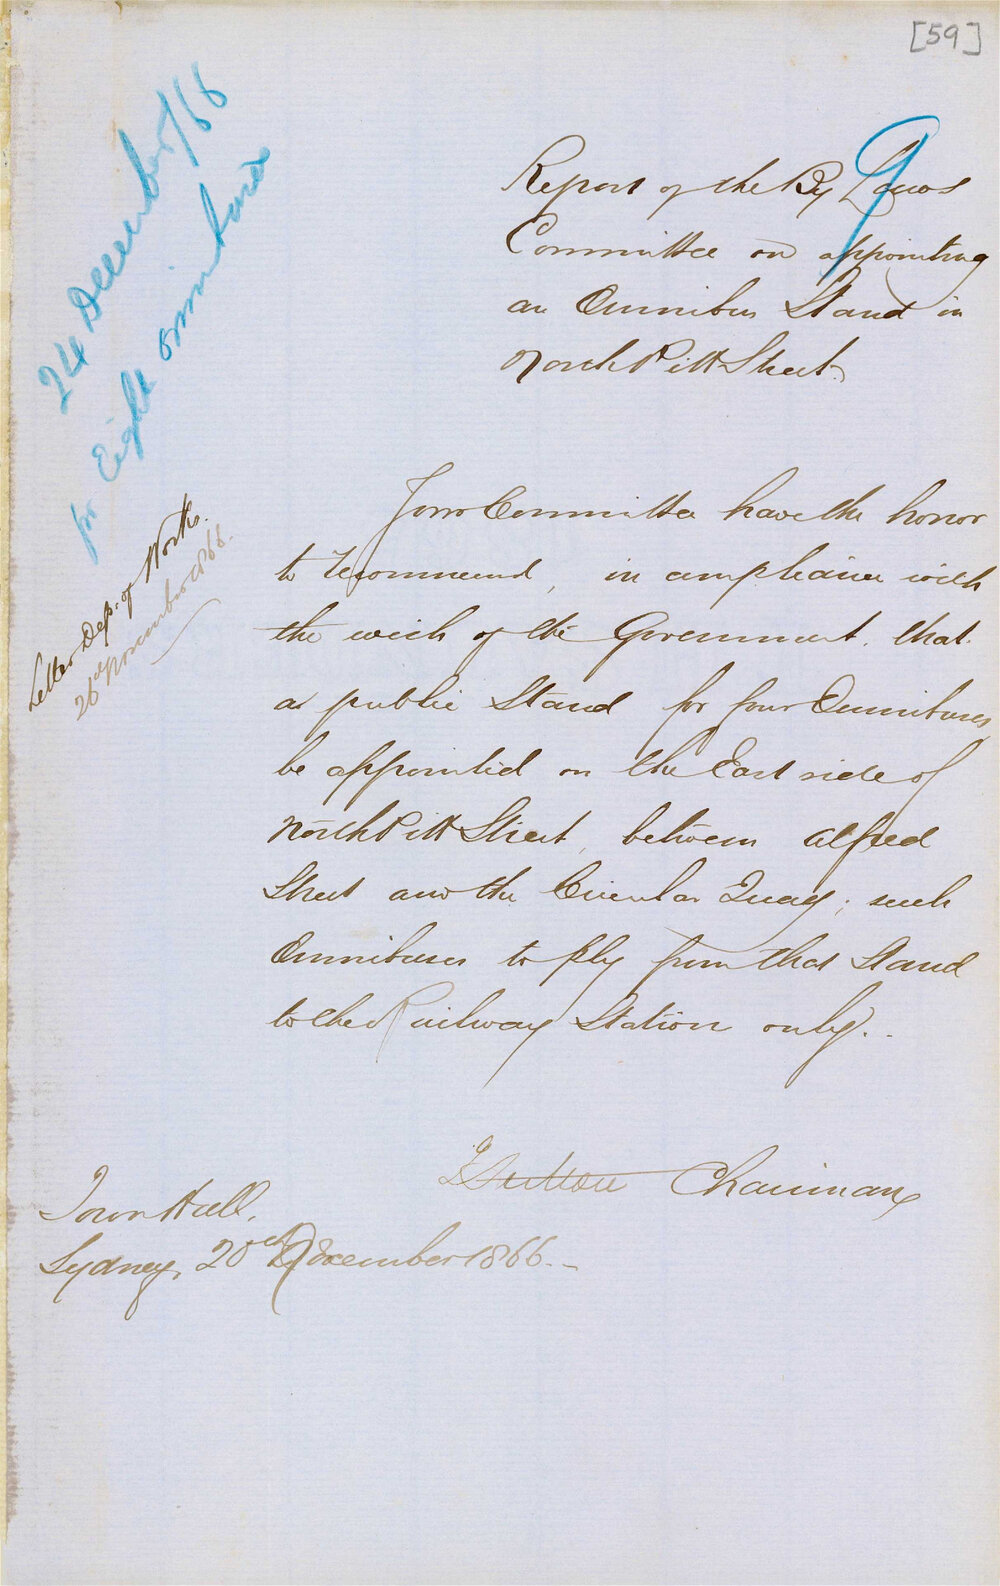 [59]
9
Report of the By Laws
Committee on appointing
an Omnibus Stand in
North Pitt Street.
24 December/66
for Eight omnibuses
Letter Dep: of Works.
26th November 1866.
Your Committee have the honor
to recommend, in compliance with
the wish of the Government, that
a public Stand for four Omnibuses
be appointed on the East side of
North Pitt Street, between Alfred
Street and the Circular Quay; such
Omnibuses to ply from that Stand
to the Railway Station only.
Sutton Chairman
Town Hall,
Sydney, 20th December 1866.